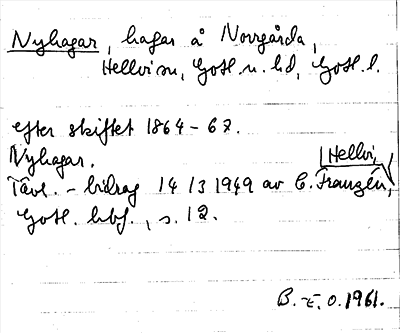 Nyhagar, hagar å Norrgårda,
Hellvi sn, Gotl. n. hd, Gotl. l.
efter skiftet 1864-67.
Nyhagar.
Hellvi,
Tävl.-bidrag 14/3 1949 av C. Franzén,
Gotl. hbf., s. 12.
B. E. o. 1961.